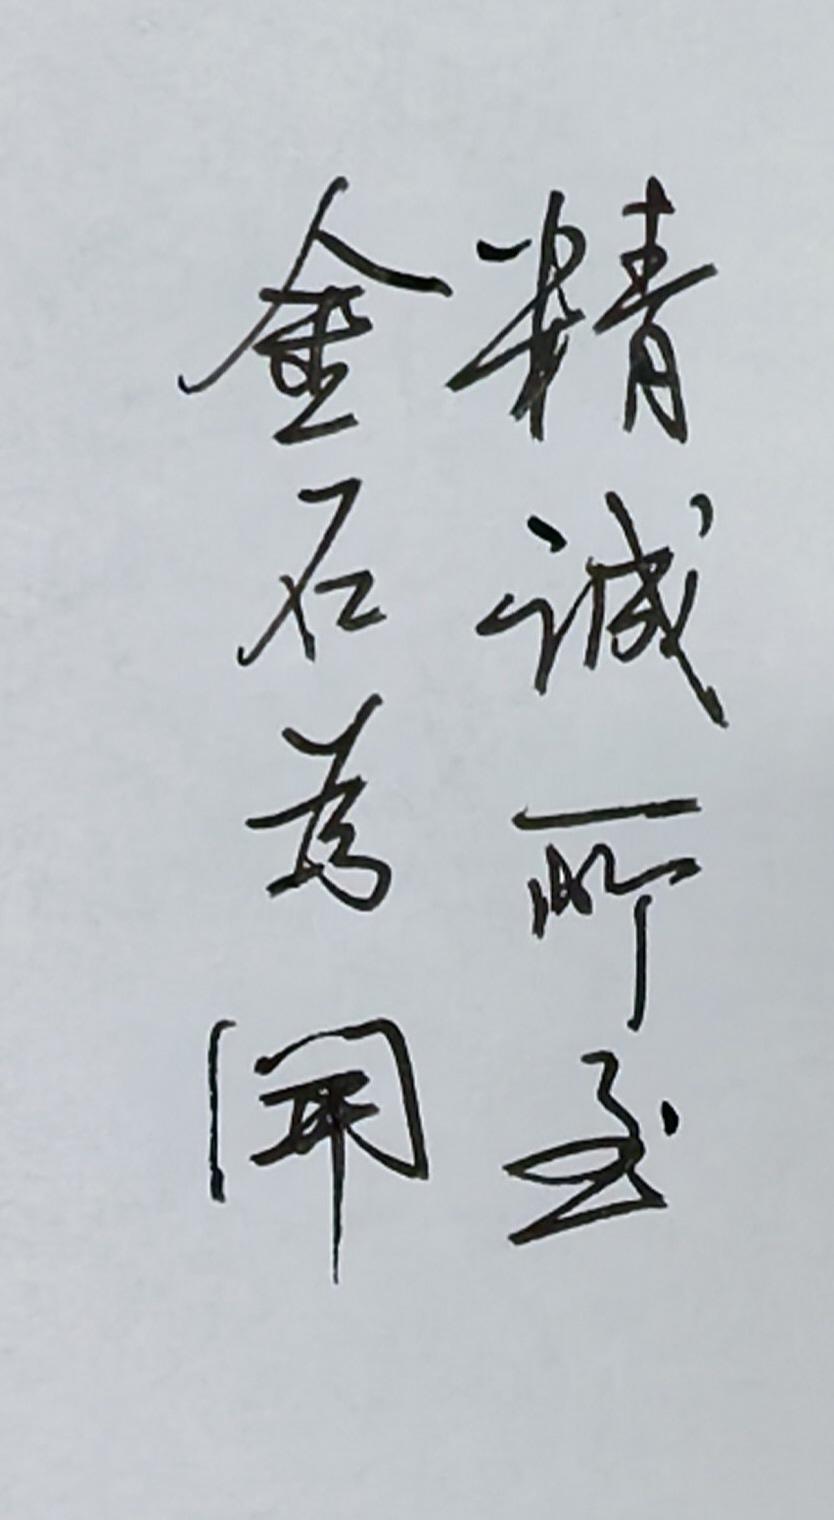 精诚所至
金石为開